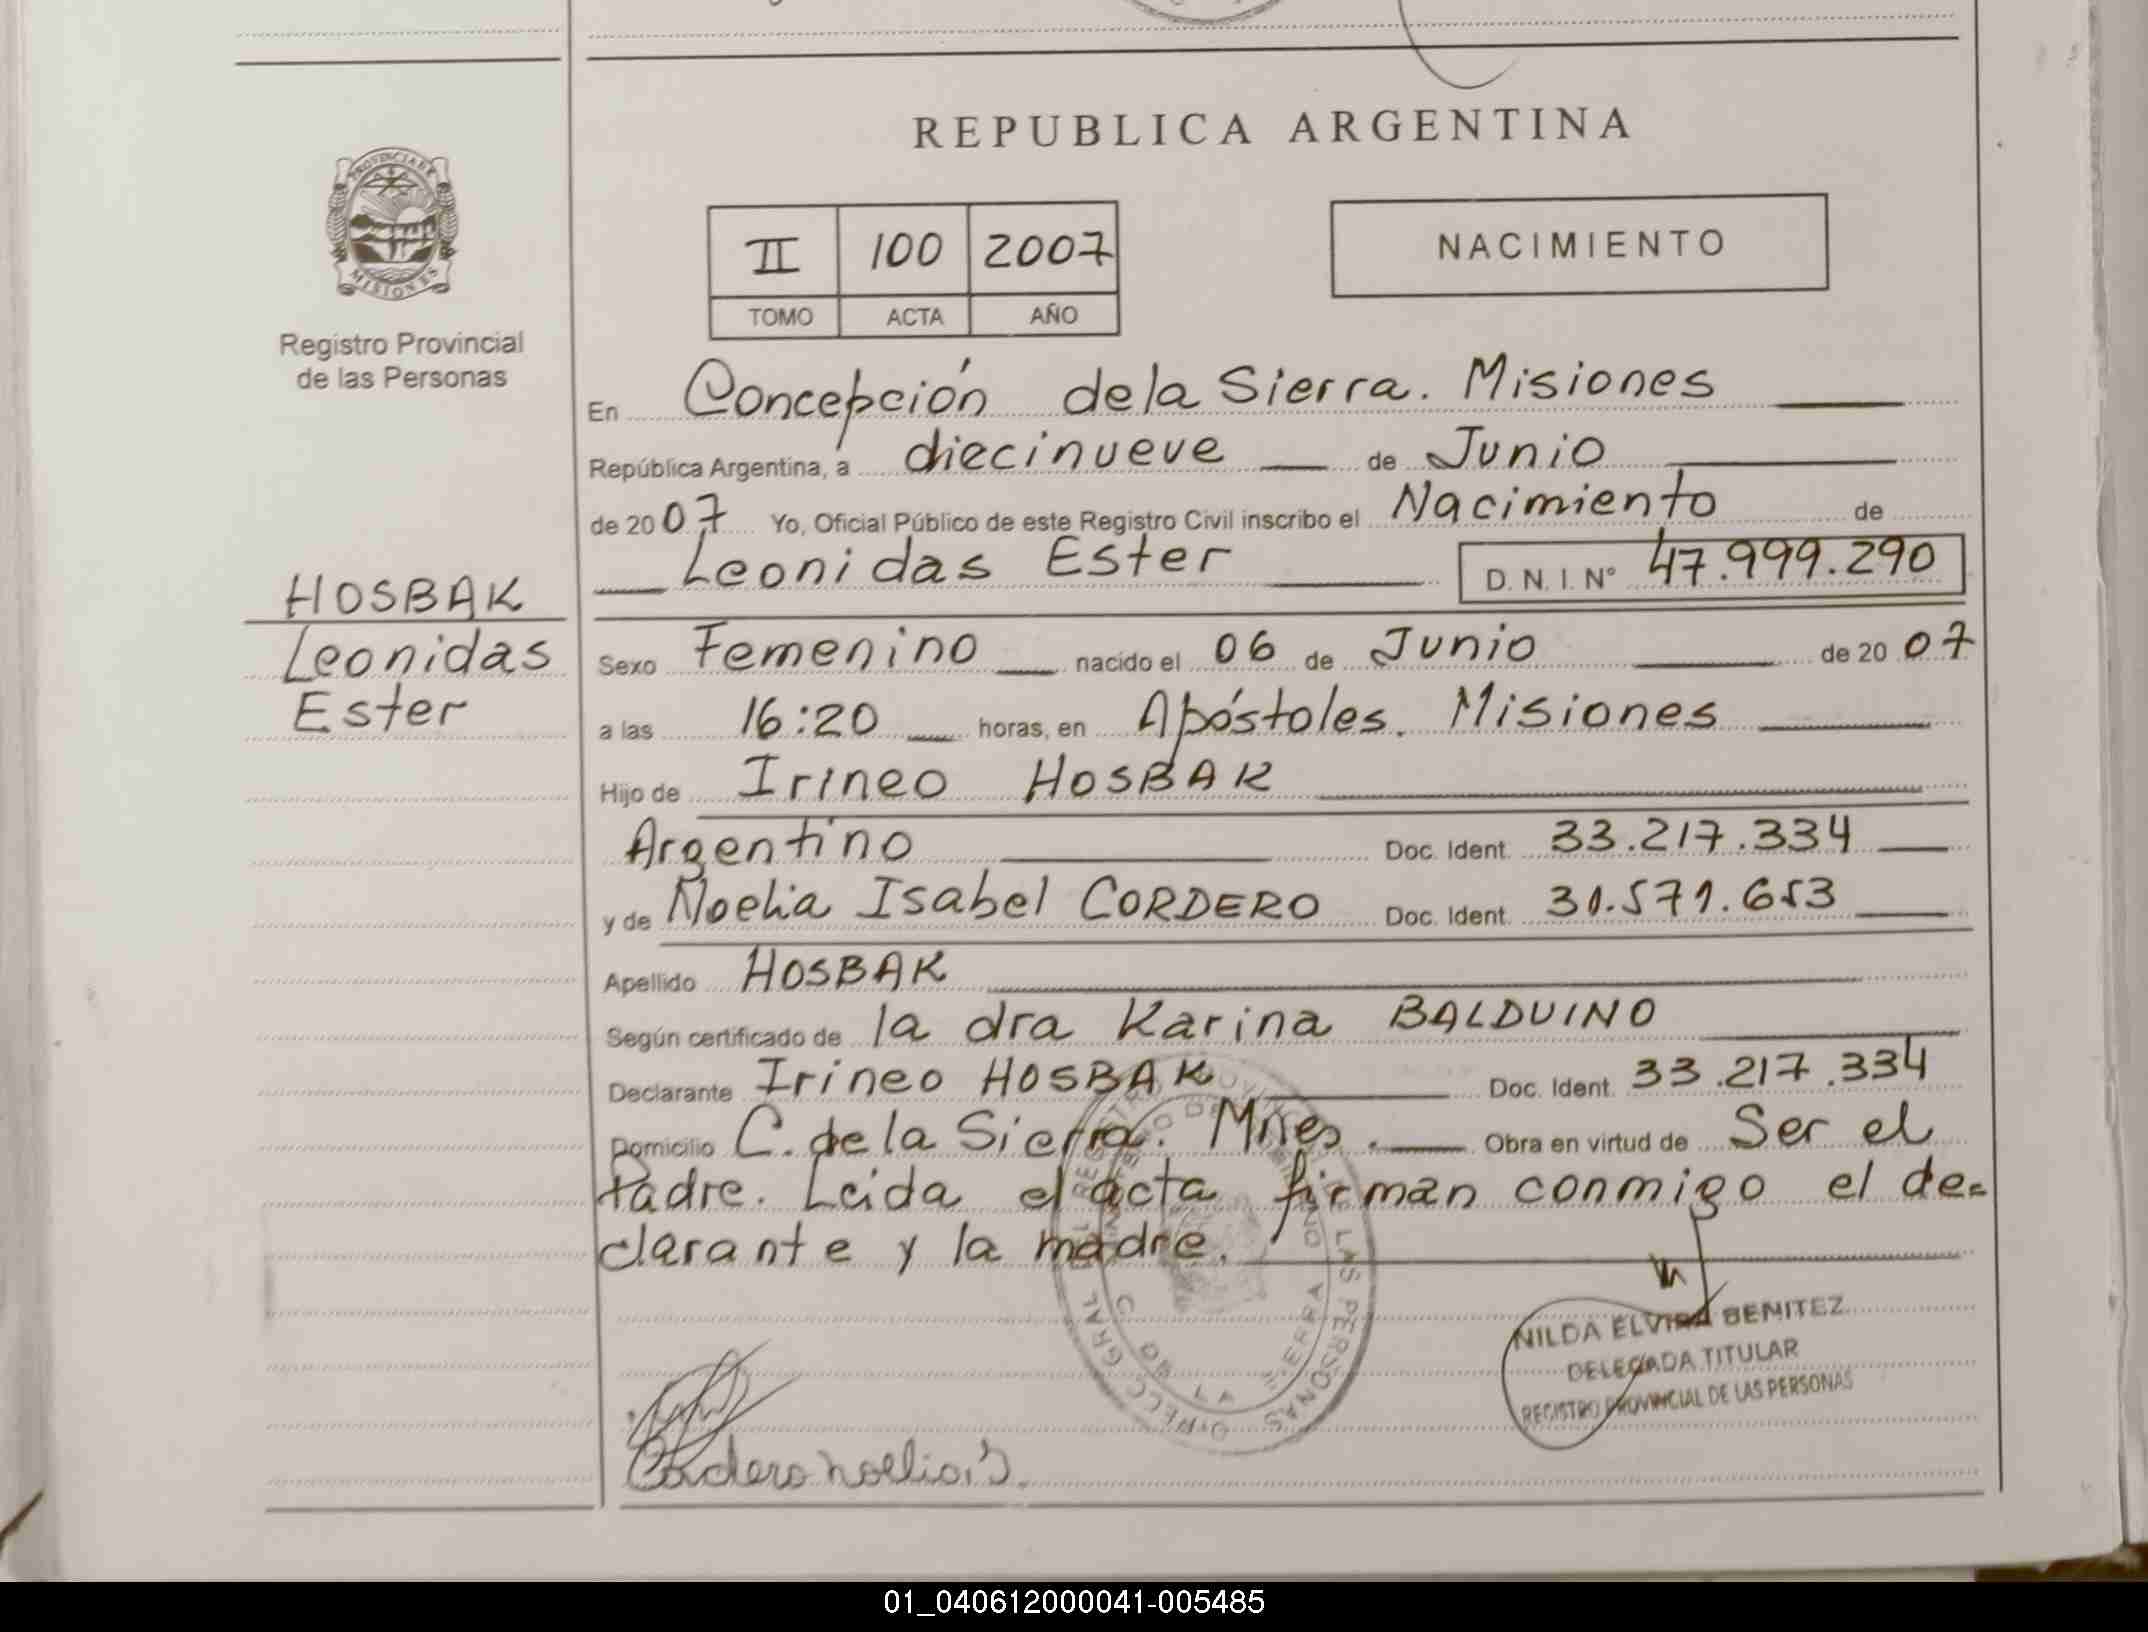 REPUBLICA ARGENTINA
PROVINCIA DE
MISIONES
Registro Provincial
de las Personas
II 100 2007
TOMO ACTA AÑO
NACIMIENTO
En Concepción de la Sierra. Misiones
República Argentina, a diecinueve de Junio
de 2007 Yo, Oficial Público de este Registro Civil inscribo el Nacimiento de
Leonidas Ester D. N. I. Nº 47.999.290
HOSBAK
Leonidas
Ester
Sexo Femenino nacido el 06 de Junio de 2007
a las 16:20 horas, en Apóstoles. Misiones
Hijo de Irineo HOSBAK
Argentino Doc. Ident. 33.217.334
y de Noelia Isabel CORDERO Doc. Ident. 31.571.653
Apellido HOSBAK
Según certificado de la dra Karina BALDUINO
Declarante Irineo HOSBAK Doc. Ident. 33.217.334
Domicilio C. de la Sierra. Mnes. Obra en virtud de Ser el
Padre. Leida el acta firman conmigo el de=
clarante y la madre.
NILDA ELVIRA BENITEZ
DELEGADA TITULAR
REGISTRO PROVINCIAL DE LAS PERSONAS
Cordero noelia I.
01_040612000041-005485